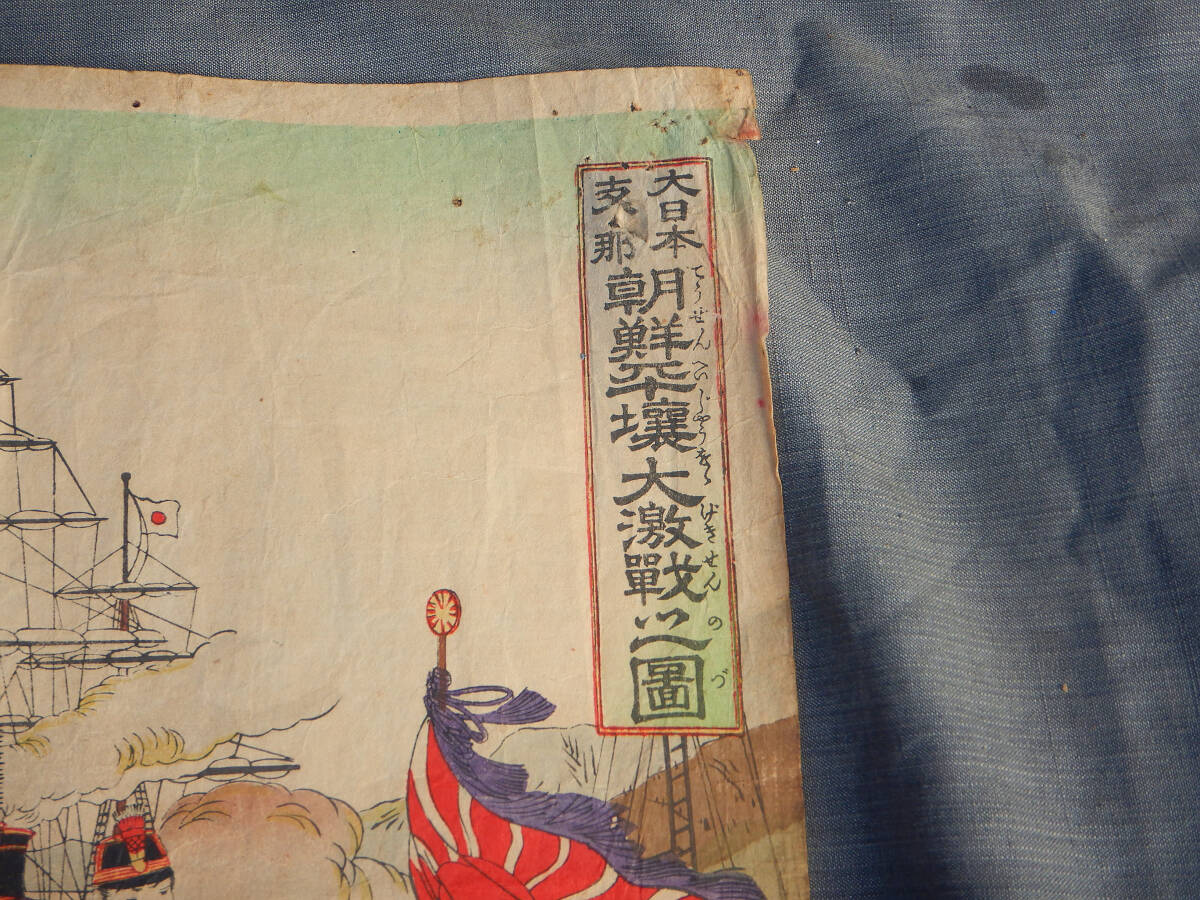 大日本
支那
朝鮮平壤大激戰之圖
てうせんへいじやうだいげきせんのづ